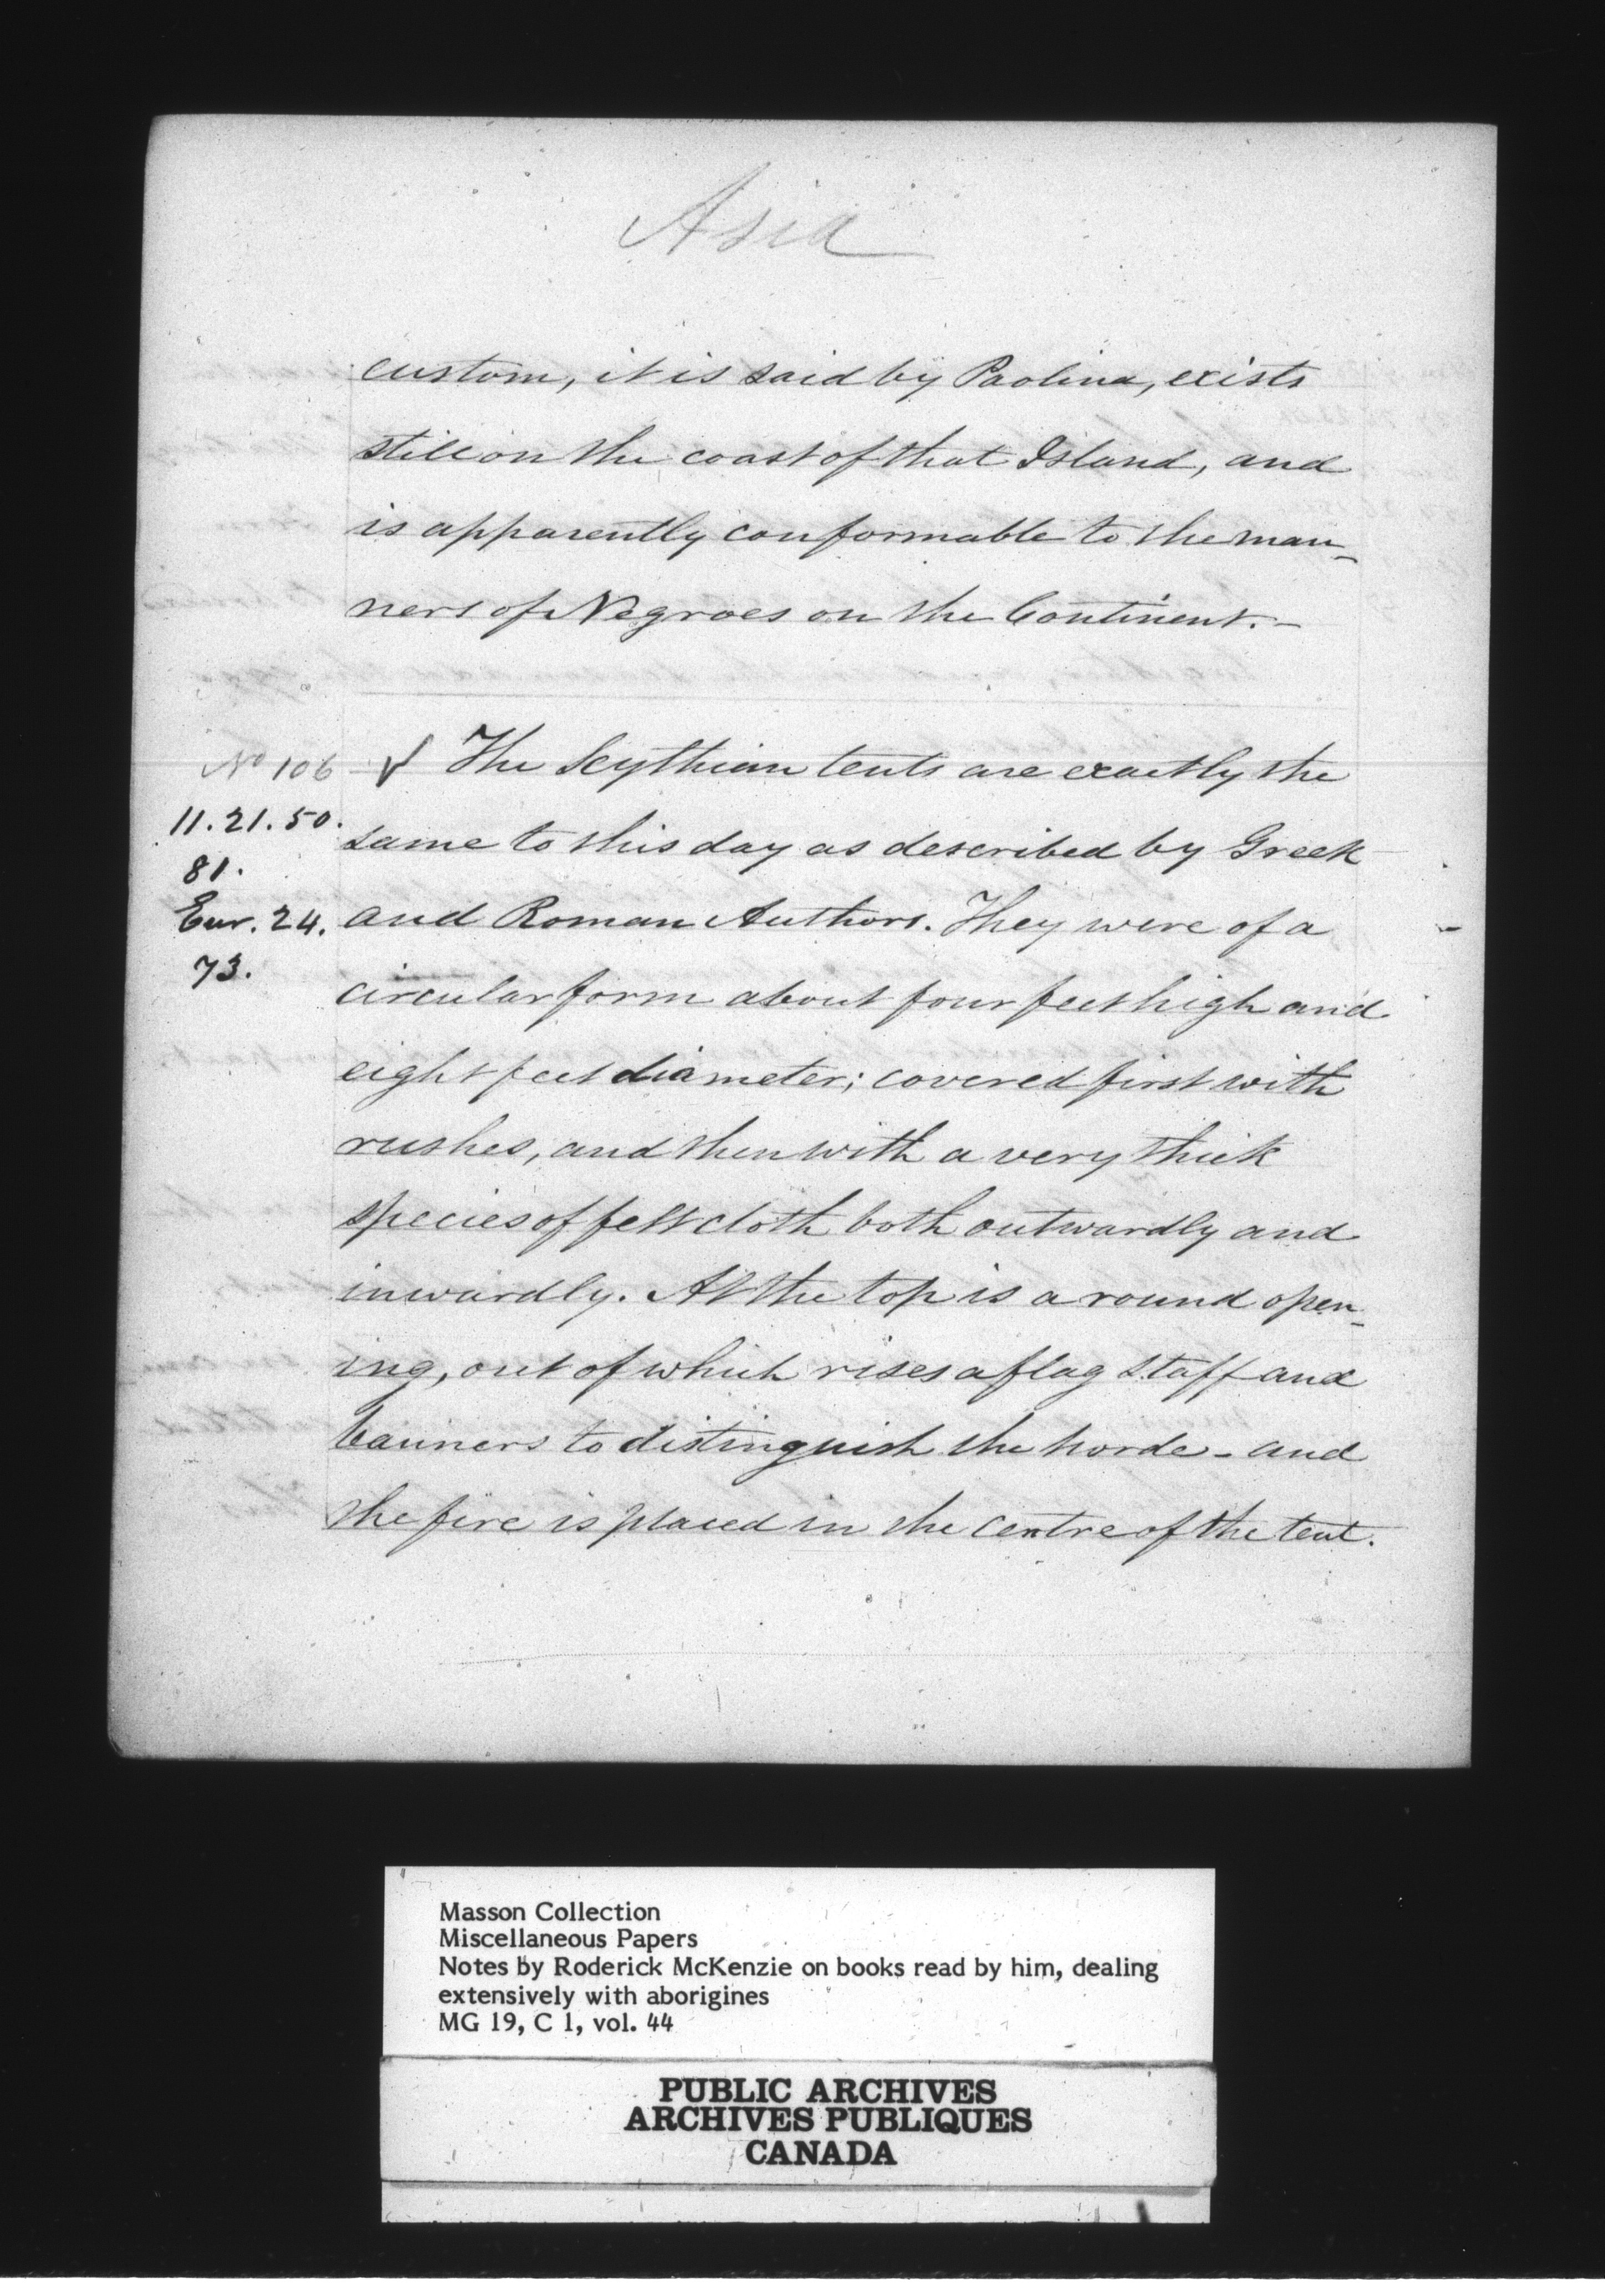 Asia
custom, it is said by Paolina, exists
still on the coast of that Island, and
is apparently conformable to the man-
ners of Negroes on the Continent.-
No 106 The Scythian tents are exactly the
11.21.50. same to this day as described by Greek
81.
Eur. 24. and Roman Authors. They were of a
73.
circular form about four feet high and
eight feet diameter; covered first with
rushes, and then with a very thick
species of felt cloth both outwardly and
inwardly. At the top is a round open-
ing, out of which rises a flag staff and
banners to distinguish the horde - and
the fire is placed in the centre of the tent.
Masson Collection
Miscellaneous Papers
Notes by Roderick McKenzie on books read by him, dealing
extensively with aborigines
MG 19, C 1, vol. 44
PUBLIC ARCHIVES
ARCHIVES PUBLIQUES
CANADA